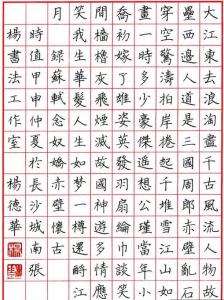 大江東去浪淘盡千古風流人物故
壘西邊人道是三國周郎赤壁亂石
穿空驚濤拍岸捲起千堆雪江山如
畫一時多少豪傑遙想公瑾當年小
喬初嫁了雄姿英發羽扇綸巾談笑
間檣櫓灰飛煙滅故國神遊多情應
笑我生華髮人生如夢一樽還酹江
月
錄蘇軾念奴嬌赤壁懷古
時值甲申仲夏於長沙城南張
楊書法工作室 楊德華